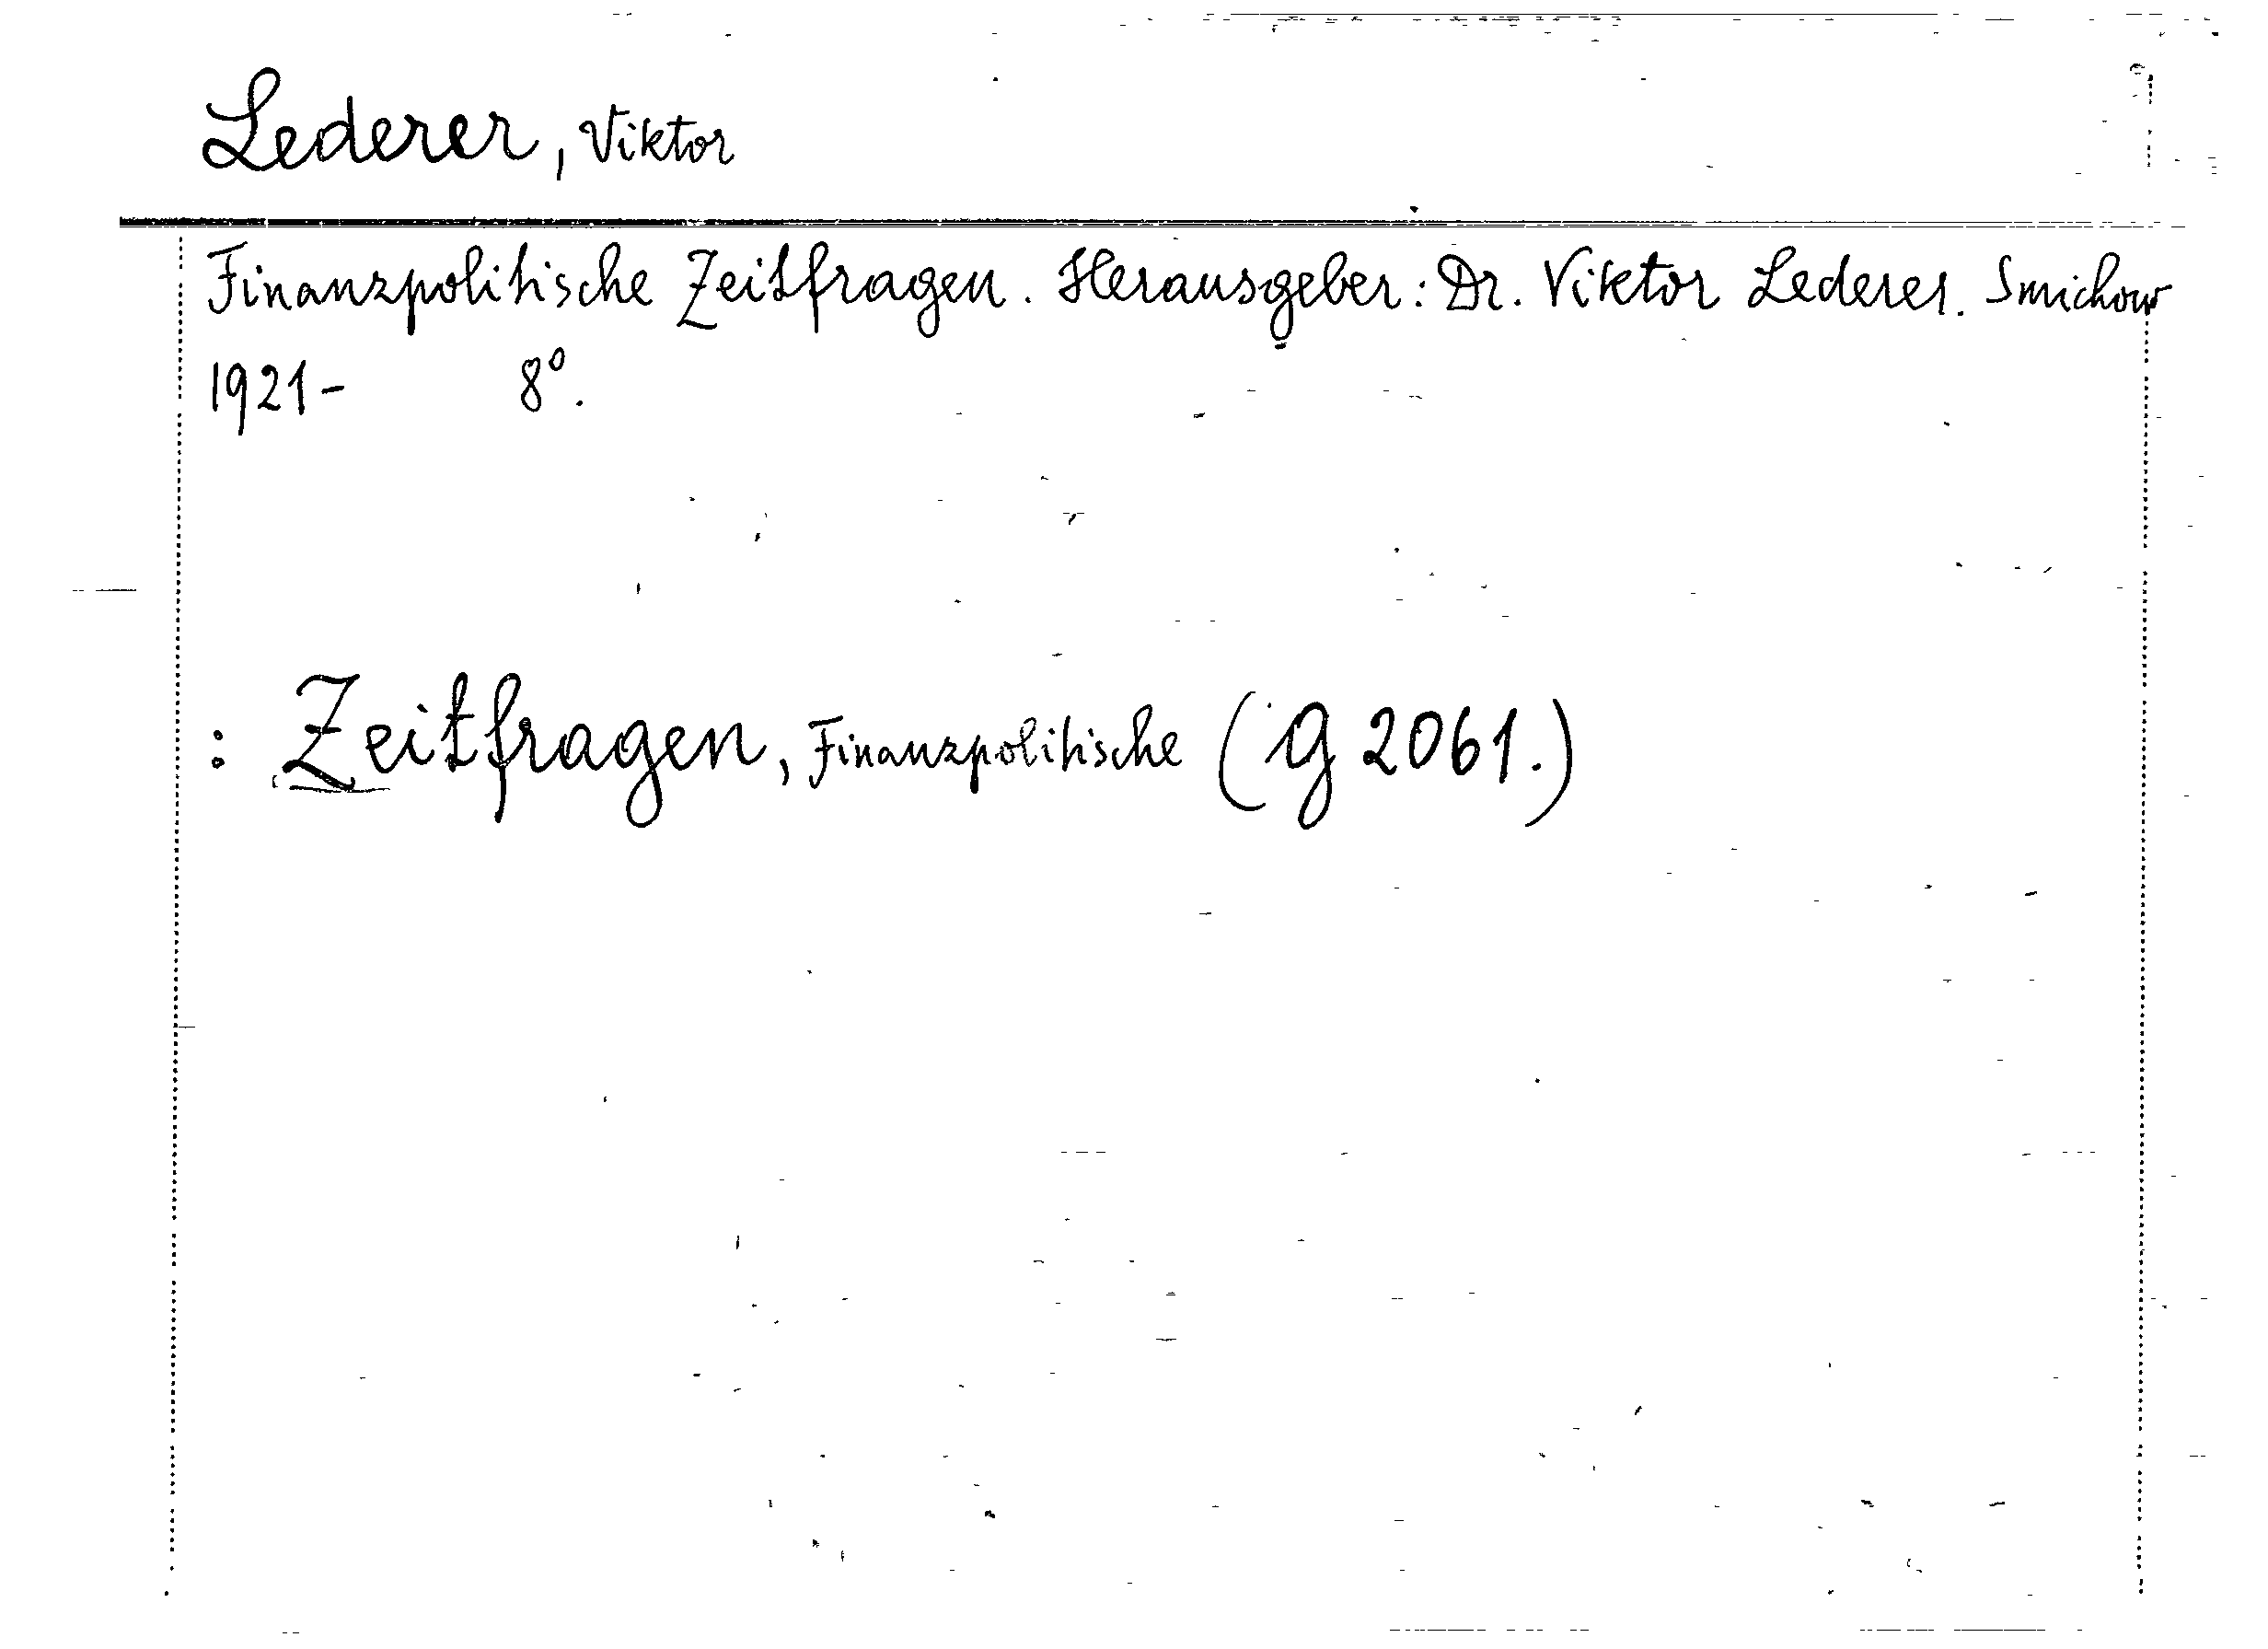 Lederer, Viktor
Finanzpolitische Zeitfragen. Herausgeber: Dr. Viktor Lederer. Smichow
1921- 8°.
: Zeitfragen, Finanzpolitische (g 2061.)